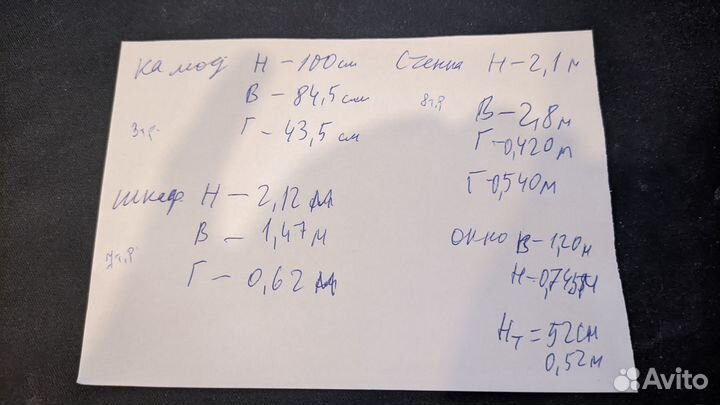 Камод H - 100см
B - 84,5 см
3т.р.
Г - 43,5 см
Шкаф H - 2,12 м
B - 1,47 м
Г - 0,62 м
Стенка H - 2,1 м
8т.р
B - 2,8 м
Г - 0,420 м
Г - 0,540 м
окно B - 1,20 м
H - 0,745 м
Hт = 52 см
0,52 м
Avito